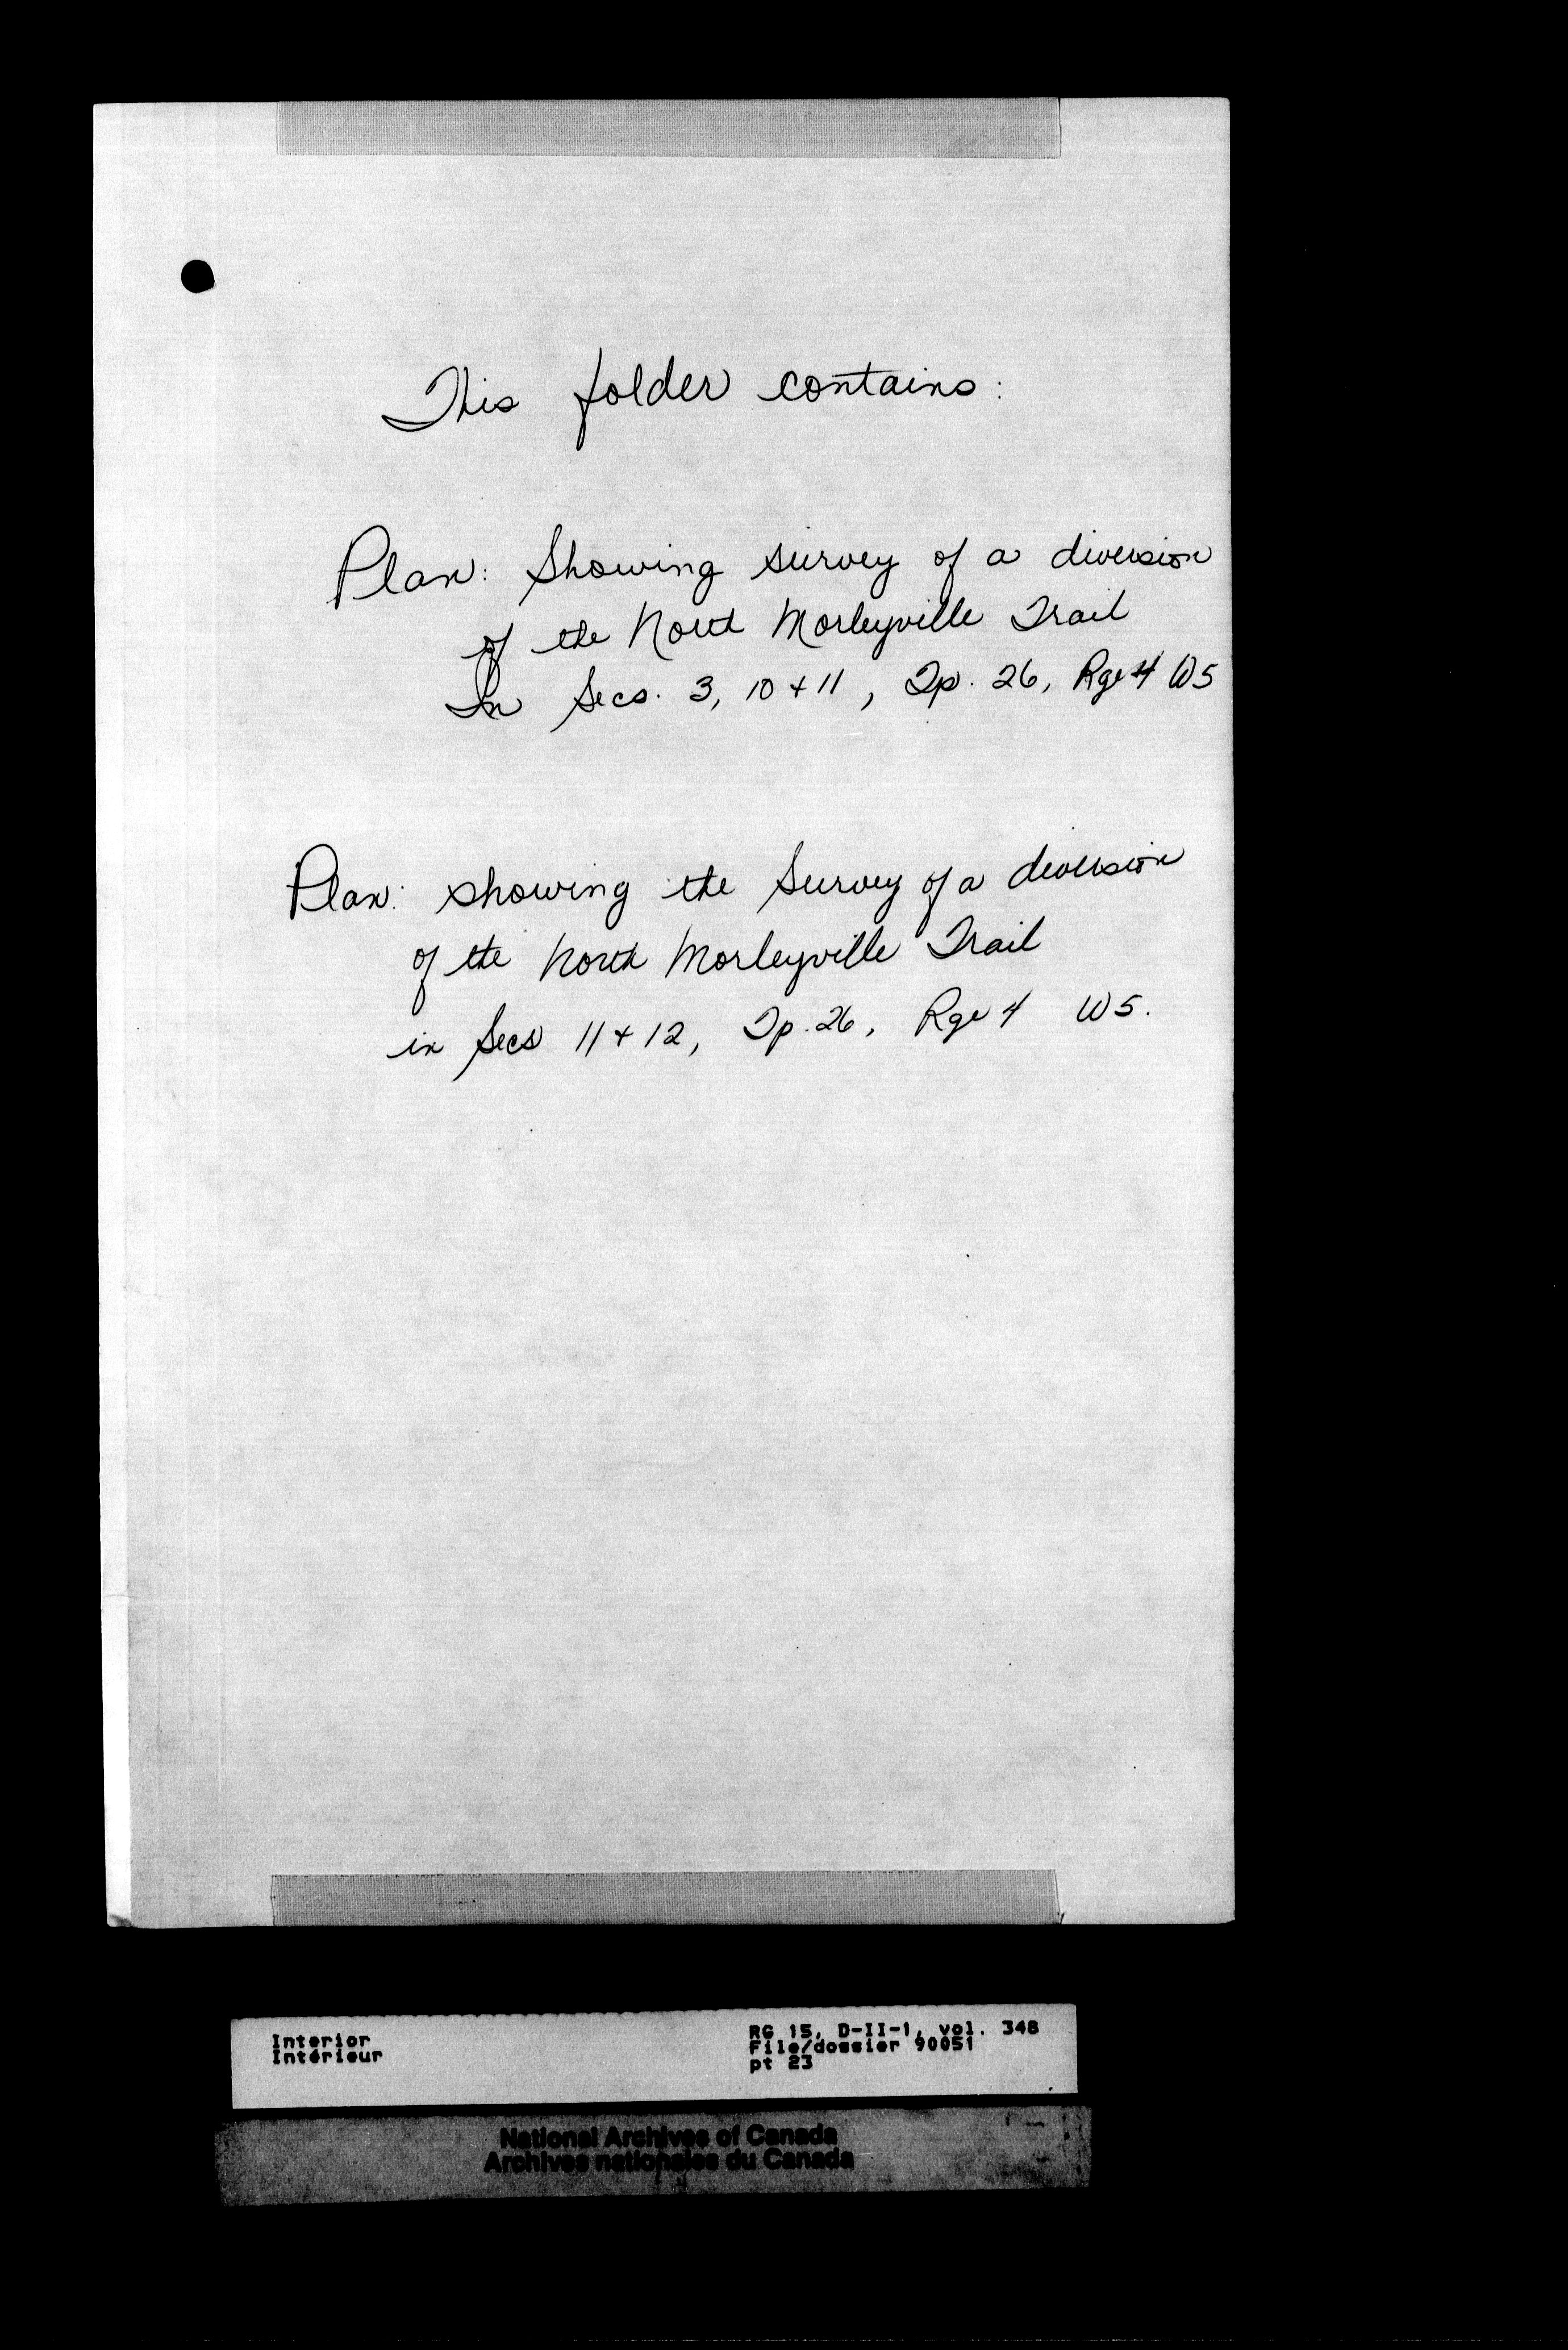 This folder contains:
Plan: Showing survey of a diversion
of the North Morleyville Trail
In Secs. 3, 10 + 11, Tp. 26, Rge 4 W5
Plan: showing the Survey of a diversion
of the North Morleyville Trail
in Secs 11 + 12, Tp. 26, Rge 4 W5.
Interior
Intérieur
RG 15, D-II-1, vol. 348
File/dossier 90051
pt 23
National Archives of Canada
Archives nationales du Canada